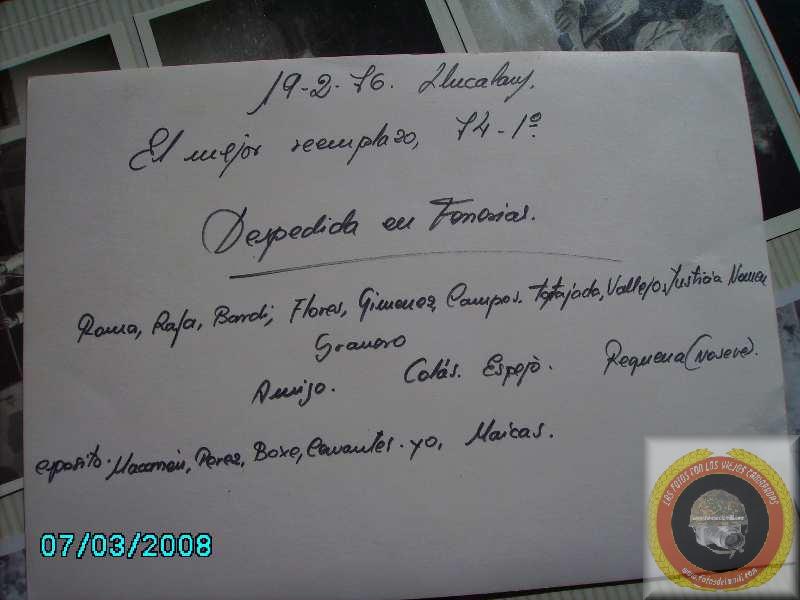 19-2-76.
El mejor reemplazo, 74-1º.
Despedida en
Roma, Rafa, Bardi, Flores, Gimenez, Campos. Tatajada, Vallejo, Justicia
Granero
Amigo. Colás. Espejo. Requena (Noseve).
esposito. Perez, Boxe, Cavantes. yo, Maicas.
07/03/2008
LAS FOTOS CON LOS VIEJOS CAMARADAS
www.fotosdelamili.com